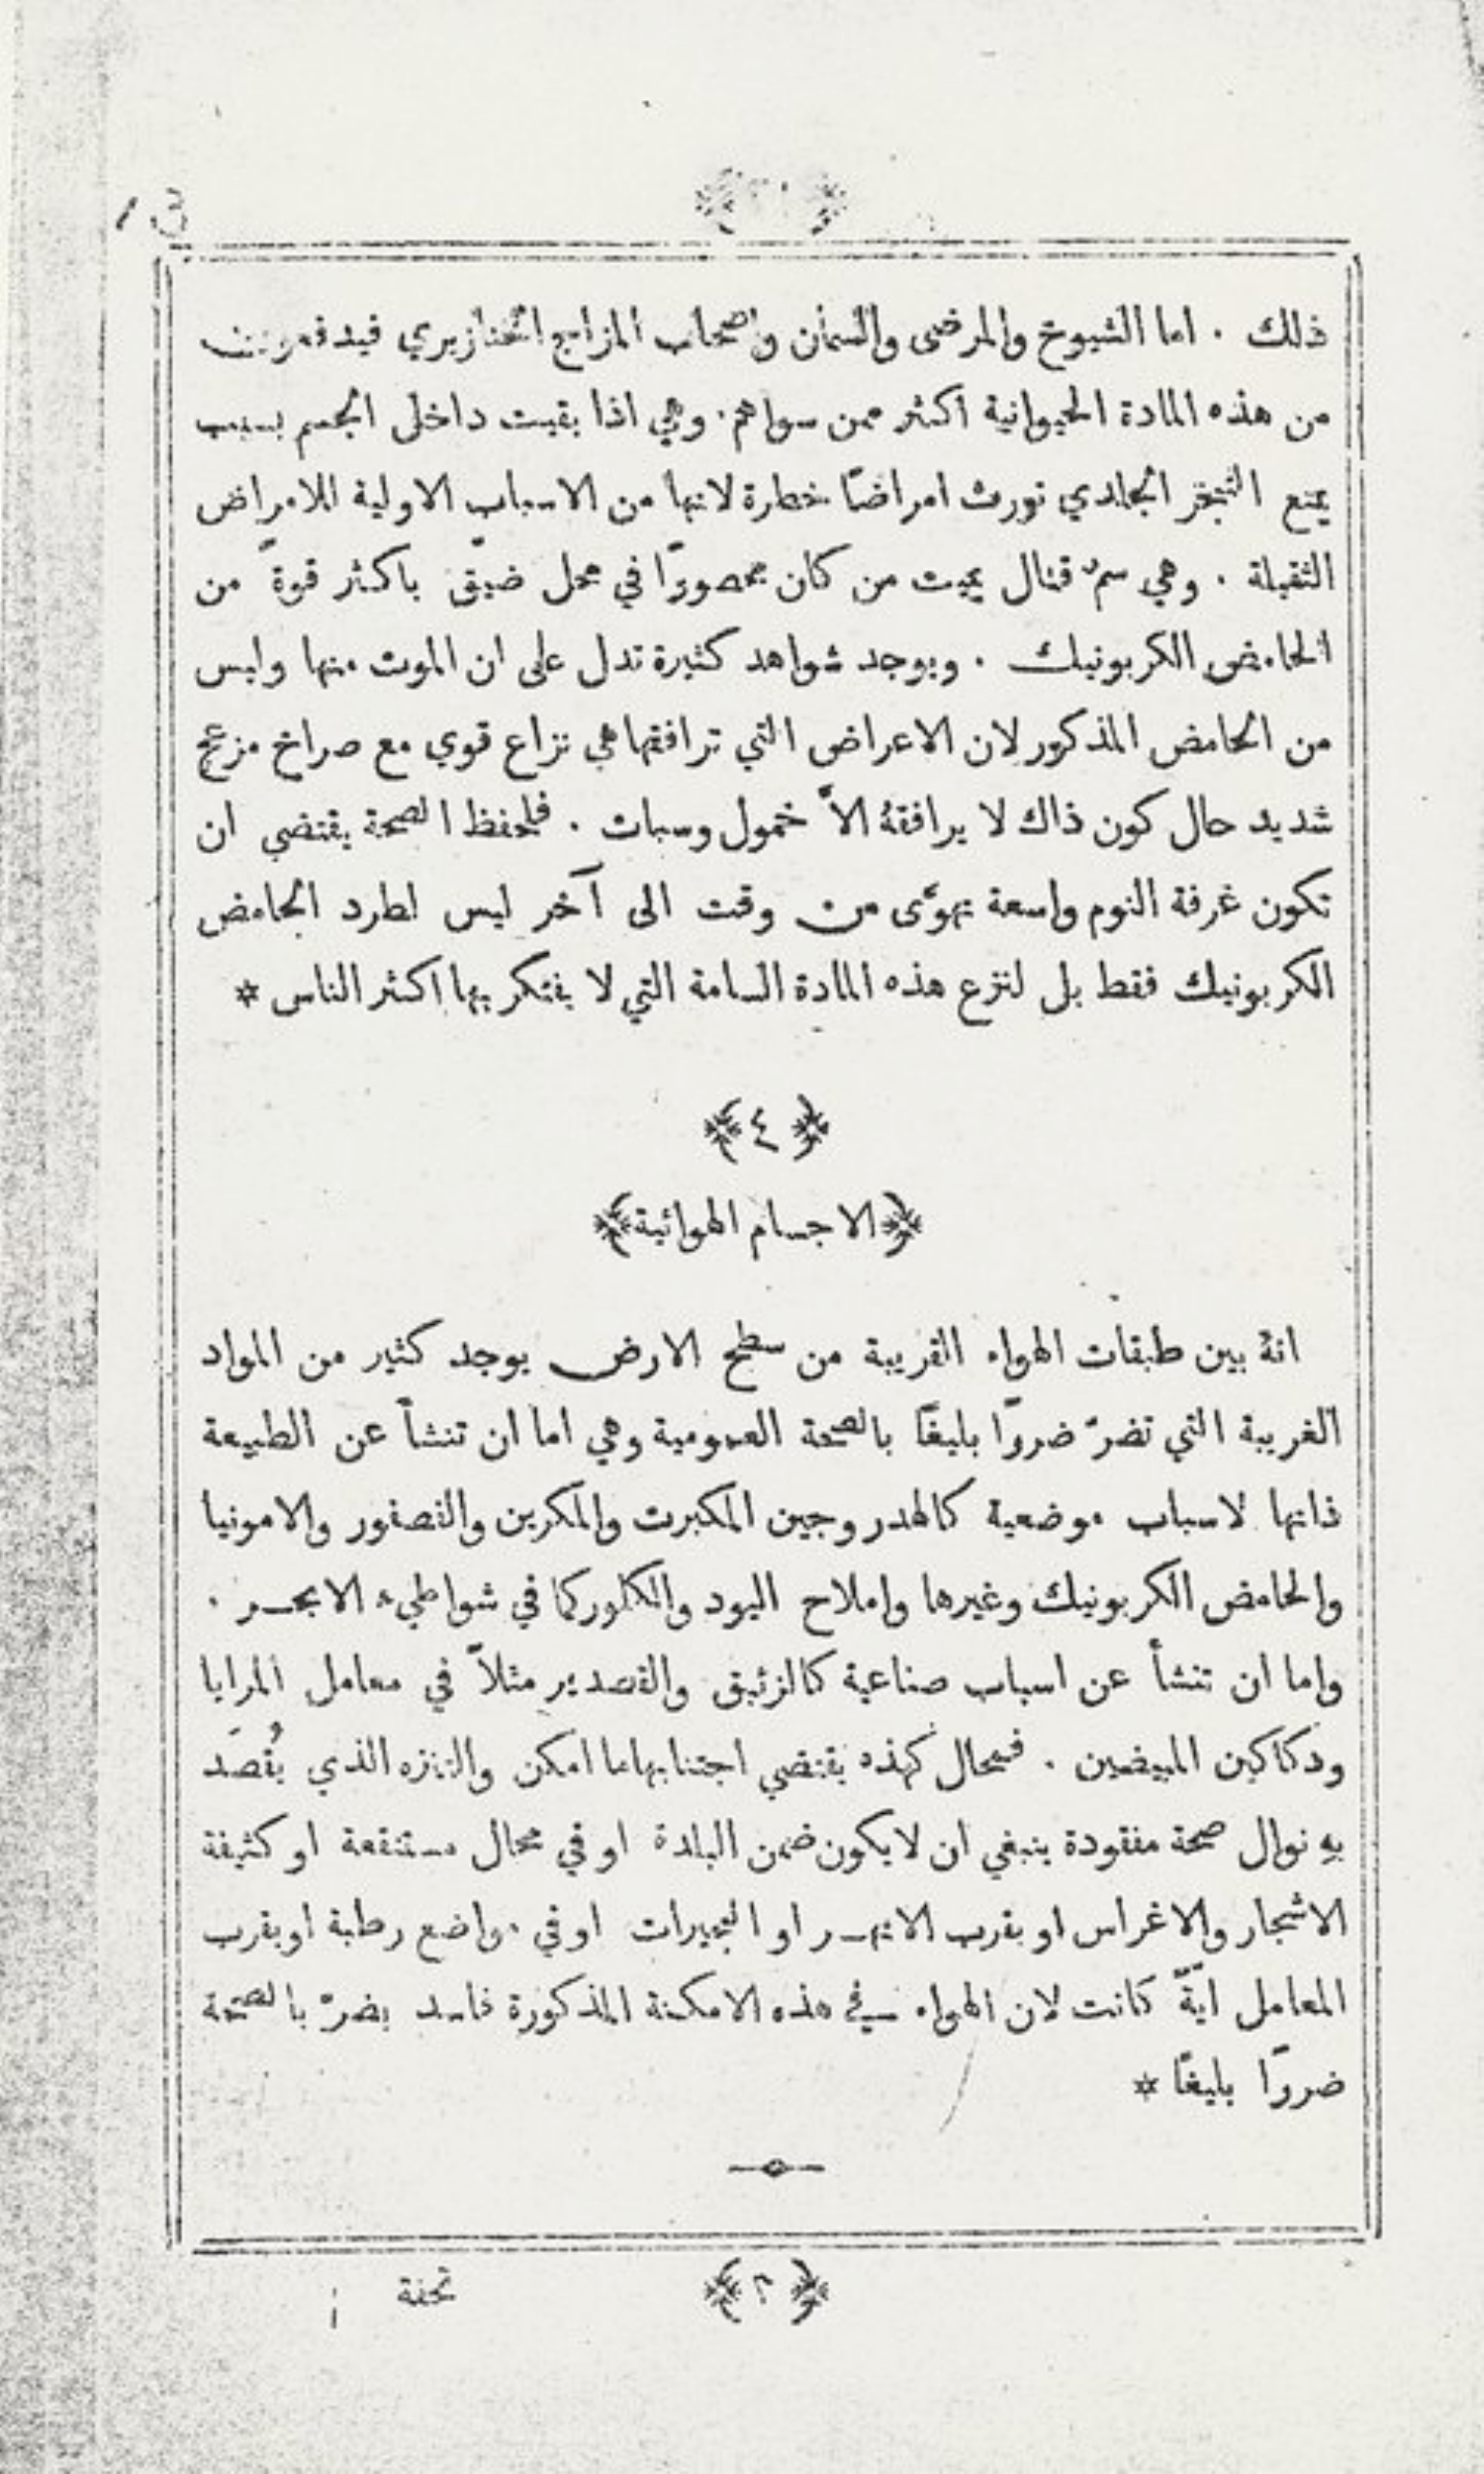 ذلك . اما الشيوخ والمرضى والسمان واصحاب المزاج الخنازيري فيدفعون
من هذه المادة الحيوانية اكثر ممن سواهم . وهي اذا بقيت داخل الجسم بسبب
يمنع التبخر الجلدي تورث امراضًا خطرة لانها من الاسباب الاولية للامراض
الثقيلة . وهي سمٌّ قتال يميت من كان محصورًا في محل ضيّق باكثر قوة من
الحامض الكربونيك . ويوجد شواهد كثيرة تدل على ان الموت منها وليس
من الحامض المذكور لان الاعراض التي ترافقها هي نزاع قوي مع صراخ مزعج
شديد حال كون ذاك لا يرافقهُ الاَّ خمول وسبات . فلحفظ الصحة يقتضي ان
تكون غرفة النوم واسعة تهوَّى من وقت الى آخر ليس لطرد الحامض
الكربونيك فقط بل لنزع هذه المادة السامة التي لا يفتكر بها اكثر الناس *
﴿ ٤ ﴾
﴿ الاجسام الهوائية ﴾
انهُ بين طبقات الهواء القريبة من سطح الارض يوجد كثير من المواد
الغريبة التي تضرّ ضررًا بليغًا بالصحة العمومية وهي اما ان تنشأ عن الطبيعة
ذاتها لاسباب موضعية كالهدروجين المكبرت والمكربن والفصفور والامونيا
والحامض الكربونيك وغيرها واملاح اليود والكلور كما في شواطيء الابحر .
واما ان تنشأ عن اسباب صناعية كالزئبق والقصدير مثلاً في معامل المرايا
ودكاكين المبيضين . فمحال كهذه يقتضي اجتنابها ما امكن والتنزه الذي يُقصَد
بهِ نوال صحة مفقودة ينبغي ان لا يكون ضمن البلدة او في محال مستنقعة او كثيفة
الاشجار والاغراس او بقرب الانهر او البحيرات او في مواضع رطبة او بقرب
المعامل ايَّة كانت لان الهواء في هذه الامكنة المذكورة فاسد يضرّ بالصحة
ضررًا بليغًا *
﴿ ٢ ﴾ تحفة